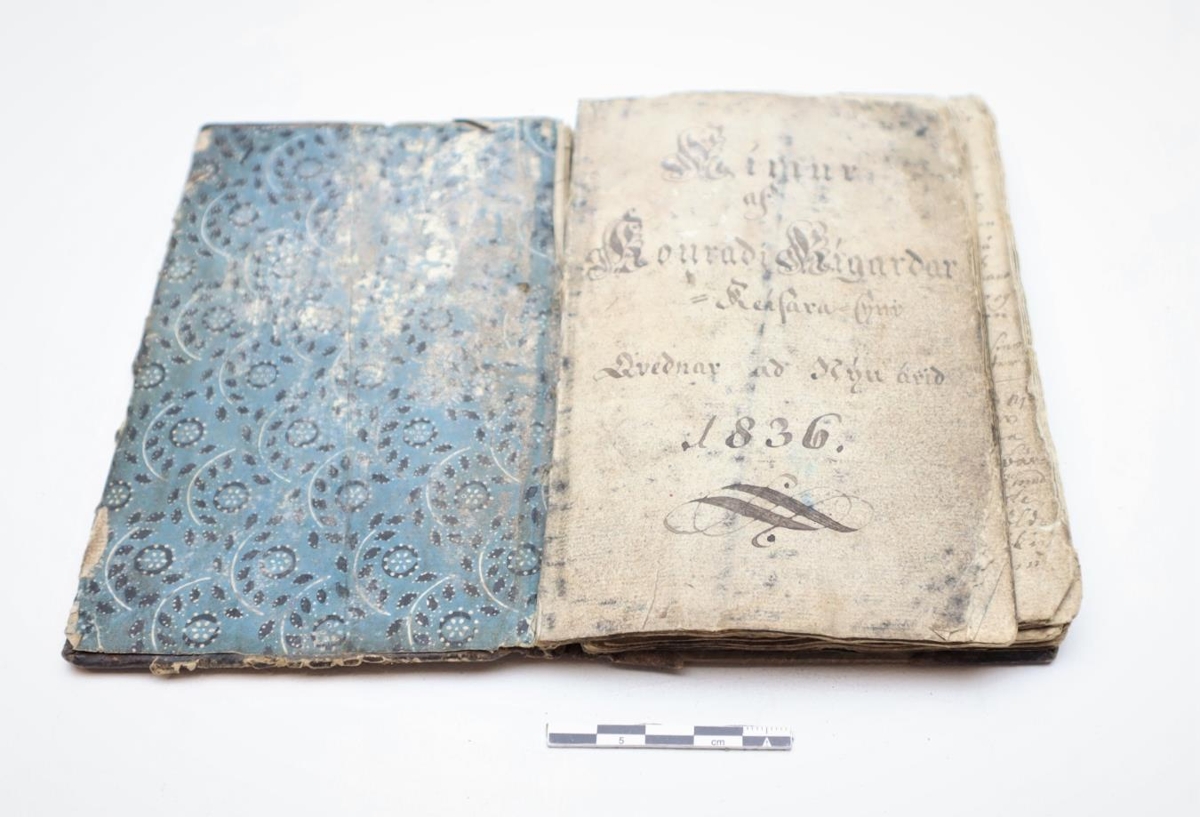 Rímur
af
Konradi Rígardar
= Keisara syni
Qvednar ad Nýu árid
1836.
5 cm
A